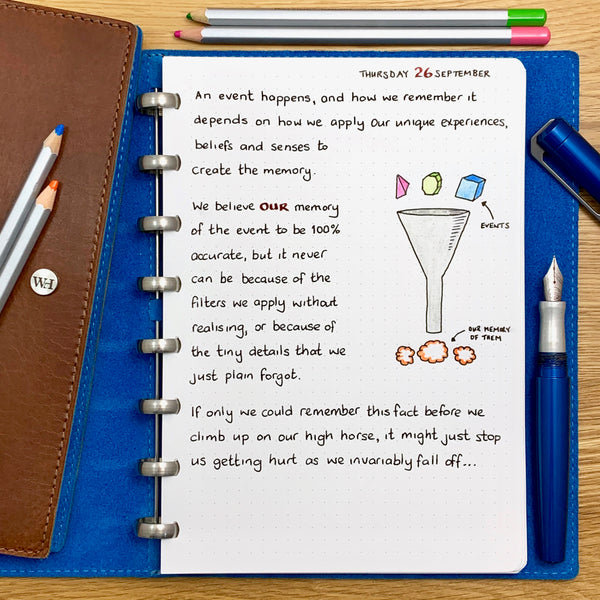 THURSDAY 26 SEPTEMBER
An event happens, and how we remember it
depends on how we apply our unique experiences,
beliefs and senses to
create the memory.
We believe OUR memory
of the event to be 100%
accurate, but it never
can be because of the
filters we apply without
realising, or because of
the tiny details that we
just plain forgot.
EVENTS
OUR MEMORY
OF THEM
If only we could remember this fact before we
climb up on our high horse, it might just stop
us getting hurt as we invariably fall off...
WH